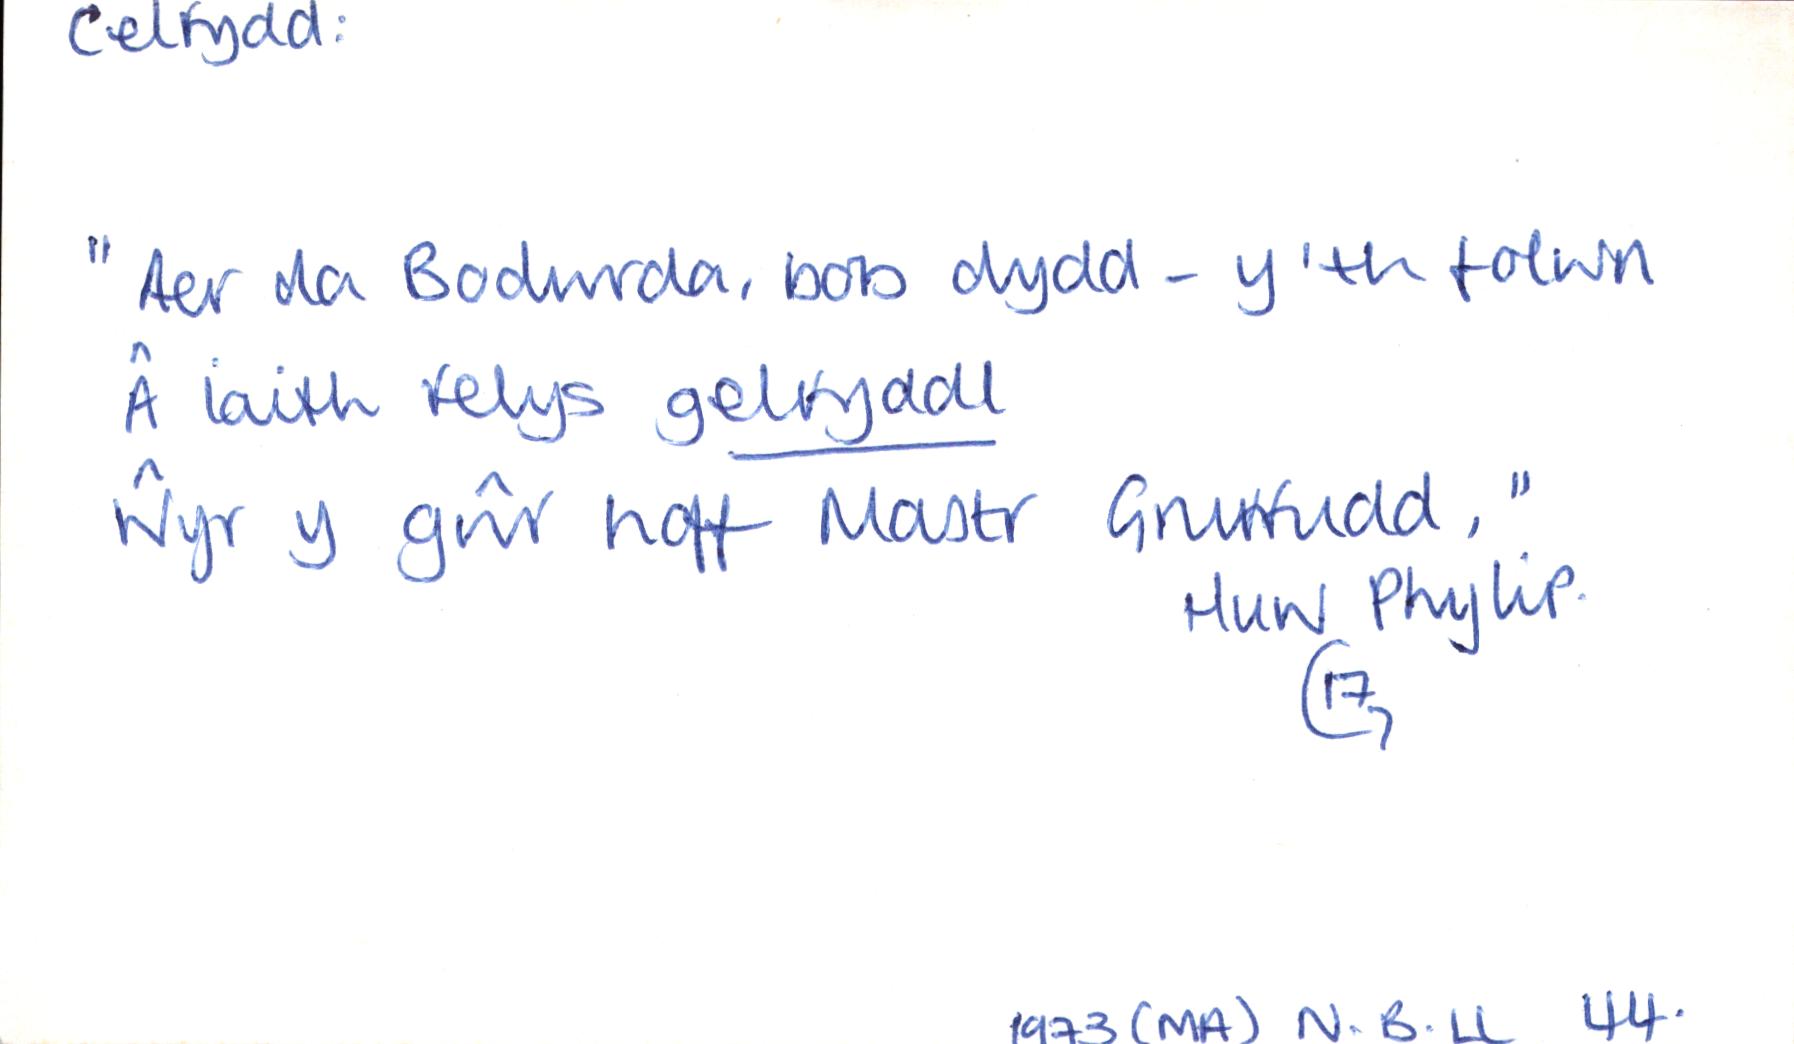 Celfydd:
"Aer da Bodwrda, bob dydd - y'th folwn
Â iaith felys gelfydd
Ŵyr y gŵr hoff Mastr Gruffudd,"
Huw Phylip.
(17,
1973 (MA) N. B. Ll 44.